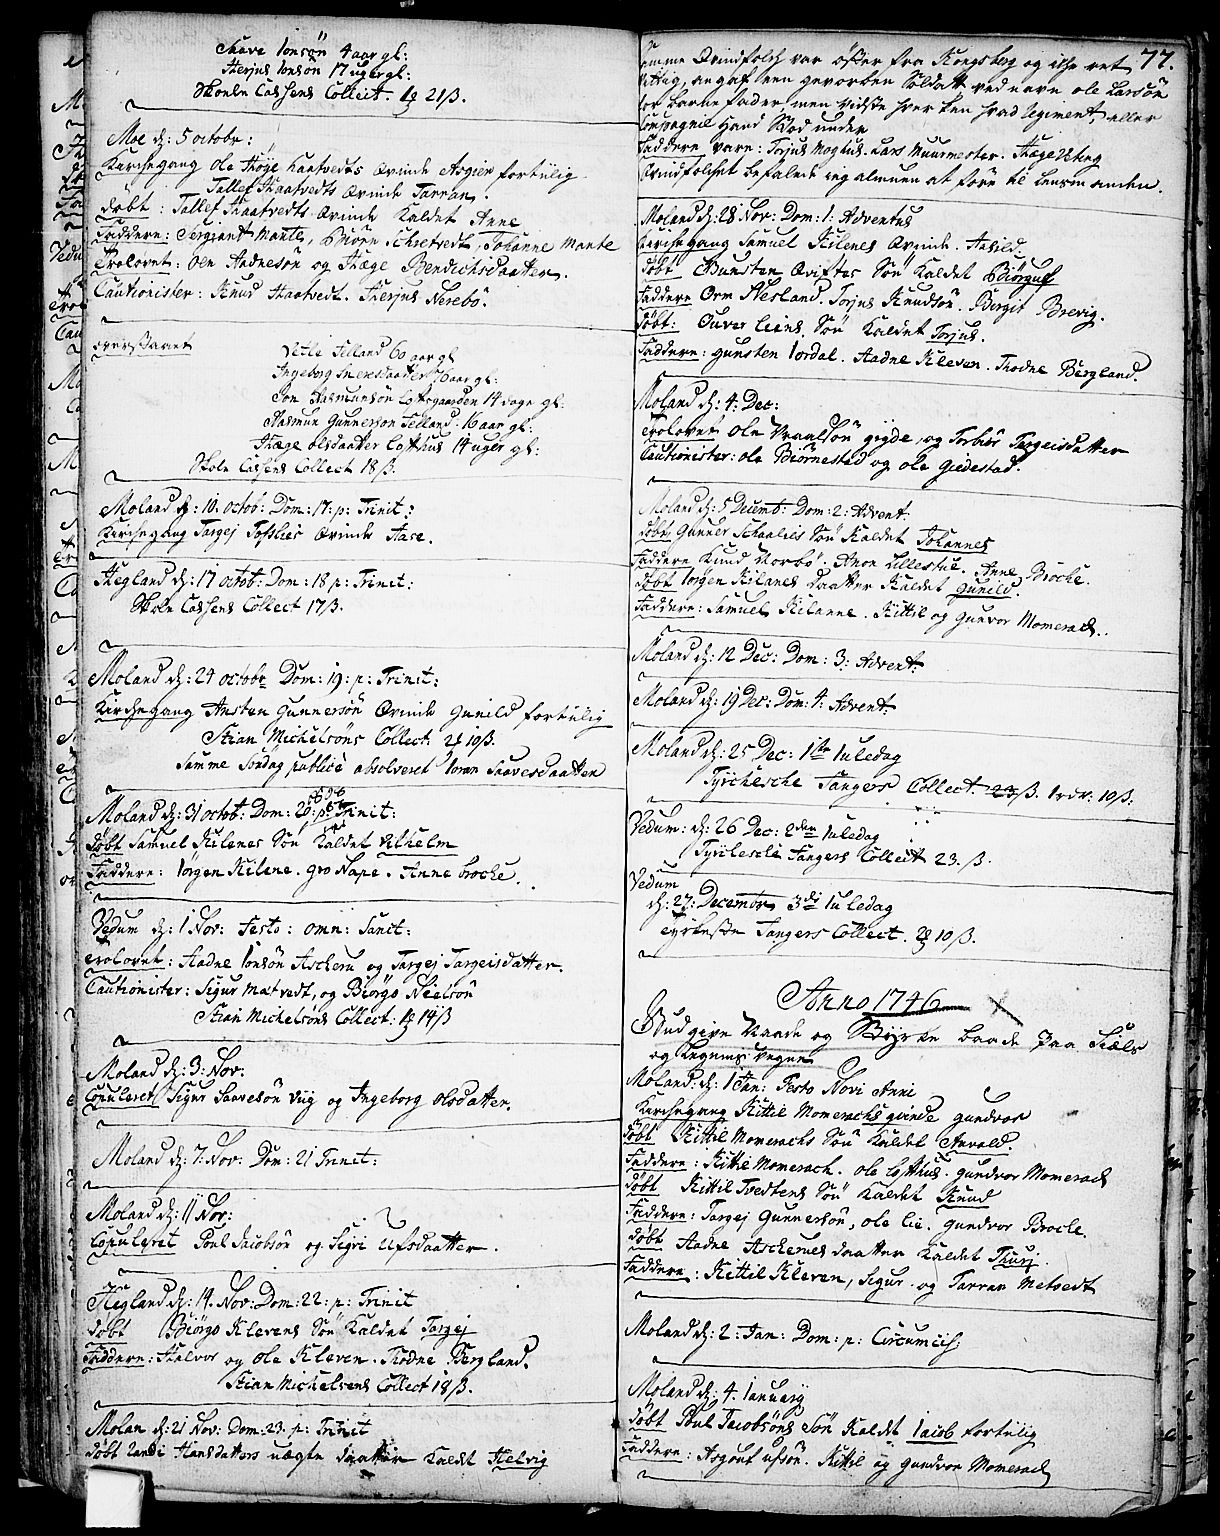 Saave Ionsön 4 aar gl:
Terjus Ionsön 17 uger gl:
Skoele Cassens Collect. 1 21 ß.
Moe d: 5 octobr:
Kirchegang Ole Tvedts Qvinde Asgier fortülig
Tallef Haatvedts Qvinde Tarran.
döbt: Tallef Haatvedts Qvinde Kaldet Anne
Faddere: Sergeant Mante, Biörn Schretvedt, Johanne Mante
Trolovet: Ole Aadnesön og Hæge Bendichsdaatter.
Cautionister: Knud Haatvedt. Terjus Nerebö.
Vetle Felland 60 aar gl
Ingeborg 76 aar gl:
Jon Aasmundsön Loftsgaarden 14 dage gl:
Aasmun Gunnersön Felland. 16 aar gl:
Hæge Olsdaatter Lofthus 14 uger gl:
Skole Cassens Collect 18 ß.
Moland d: 10. octob: Dom: 17: p: Trinit:
Kirchegang Targej Tofslies Qvinde Aase.
Hegland d: 17 octob: Dom: 18 p: Trinit:
Skole Cassens Collect 17 ß.
Moland d: 24 octobr Dom: 19: p: Trinit:
Kirchegang Ansten Gunnersön Qvinde Gunild fortülig
Stian Michelsöns Collect. 2 10 ß.
Samme Söndag publice absolveret Ioran Saavesdaatter
Moland d: 31 octob: Dom: 20: p: Trinit:
döbt Samuel Kilenes Sön Kaldet Vilhelm
Faddere: Iörgen Kilene. Gro Nape. Anne Broche.
Vedum d: 1 Nov: Festo: omn: Sanct:
Trolovet: Aadne Ionsön Ascheru og Targej Targeisdatter.
Cautionister: Sigur Matvedt, og Biörgo Nielsön
Stian Michelsöns Collect: 1 14 ß
Moland d: 3: Nov:
Copuleret Sigur Saavesön Viig og Ingeborg Olsdatter.
Moland d: 7: Nov: Dom: 21 Trinit:
Moland d: 11 Nov:
Copuleret Poul Jacobsön og Sigri Ufsdaatter.
Hegland d: 14. Nov: Dom: 22: p: Trinit
döbt Biörgo Klevens Sön Kaldet Targej
Faddere: Halvor og Ole Kleven. Todne Bergland.
Stian Michelsens Collect 18 ß.
Molan d: 21 Nov: Dom: 23. p: Trinit
döbt Hansdatters uægte daatter Kaldet Helvig
77.
samme Qvindfolch var öster fra Kongsberg og iche ret
vittig, angaf een gevorben Soldatt ved navn Ole Larsön
for barnefader, men vidste hverken hvad Regiment eller
Compagnie hand Stod under
Faddere vare: Torjus Lars Muurmester. Hæge
Qvindfolchet befalede ieg almuen at före til Lensmanden.
Moland d: 28 Nov: Dom: 1: Adventus
Kirchegang Samuel Kilenes Qvinde. Aasild
döbt Gunsten Qvistes Sön Kaldet Biörgulf
Faddere Orm Nesland. Torjus Knudsön. Bergit Brevig.
döbt: Ouver Liens Sön Kaldet Torjus.
Faddere: gunsten Iordal. Aadne Kleven. Todne Bergland.
Moland d: 4: Dec:
Trolovet Ole Vraalsön gyde, og Torbiör Targeisdatter
Cautionister: Ole Biörnestad og Ole Giedestad.
Moland d: 5 Decemb: Dom: 2: Advent:
döbt Gunner Schaalies Sön Kaldet Johannes
Faddere Knud Norbö. Anon Lillestul. Anne Broche.
döbt Iörgen Kilenes daatter Kaldet Gunild.
Faddere: Samuel Kilenne. Kittil og Gunvor Momerach.
Moland d: 12 Dec: Dom: 3: Advent:
Moland d: 19 Dec: Dom: 4: Advent:
Moland d: 25 Dec: 1ste Iuledag
Tyrchesche Fangers Collect. 23 ß. 1 rdr: 10 ß:
Vedum: d: 26 Dec: 2den Iuledag
Tyrchesche Fangers Collect 23. ß.
Vedum
d: 27: Decembr 3di Iuledag
Tyrkeske Fangers Collect. 2 10 ß.
Anno 1746
Gud give Naade og Styrke baade paa Siæls
og Legems Vegne
Moland: d: 1 Jan: Festo Novi Anni
Kirchegang Kittil Momerachs qvinde gundvor
döbt Kittil Momerachs Sön Kaldet Arvald.
Faddere: Kittil Momerach. Ole Lofthus. gundvor Momerach
döbt Kittil Tvedtens Sön Kaldet Knud
Faddere: Targej Gunnersön, Ole Lie. gundvor Brocke.
döbt Aadne Ascherues daatter Kaldet Thurj.
Faddere: Kittil Kleven, Sigur og Tarran Metvedt
Moland d: 2: Jan: Dom: p: Circumcis:
Moland d: 4. Ianuarij
döbt Poul Jacobsöns Sön Kaldet Iacob fortülig
Faddere: Asgout Ufsön. Kittil og gundvor Momerach